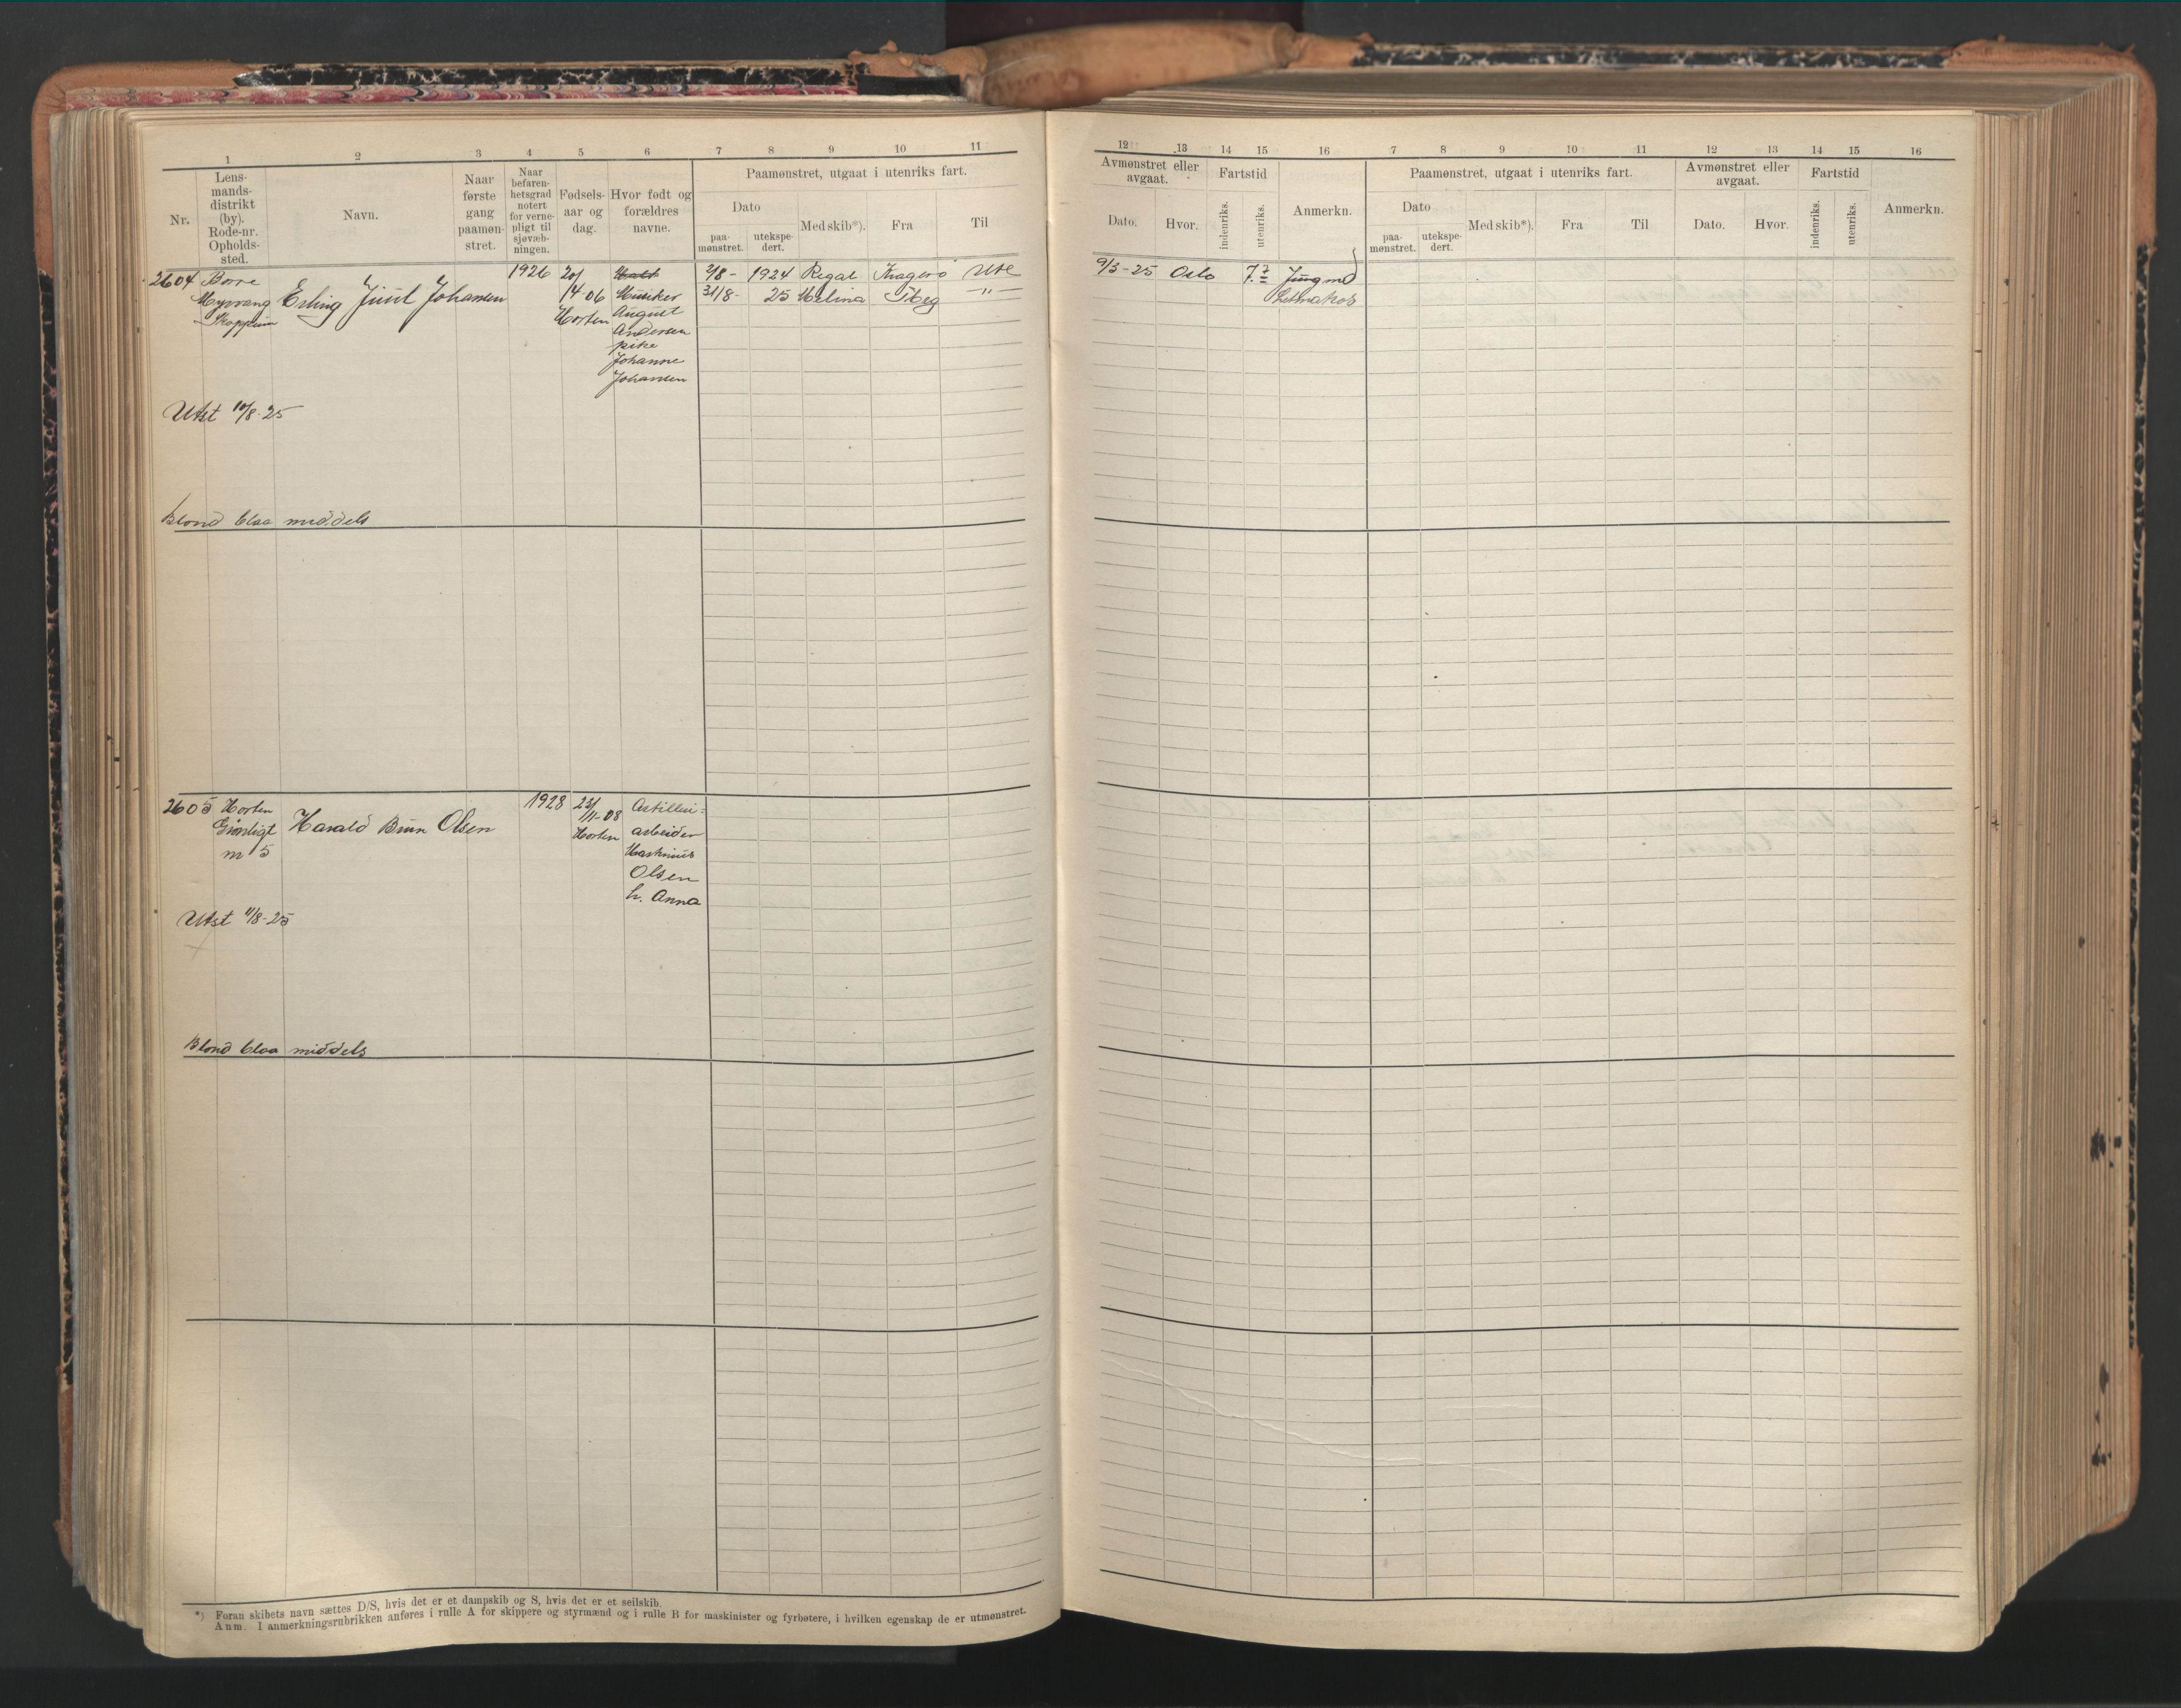 1 2 3 4 5 6 7 8 9 10 11
Nr.
Lens-
mands-
distrikt
(by).
Rode-nr.
Opholds-
sted.
Navn.
Naar
første
gang
paamøn-
stret.
Naar
befaren-
hetsgrad
notert
for verne-
pligt til
sjøvæb-
ningen.
Fødsels-
aar og
dag.
Hvor født og
forældres
navne.
Paamønstret, utgaat i utenriks fart.
Dato
paa-
mønstret.
utekspe-
dert.
Med skib*).
Fra
Til
2604 Borre
Myrvang
Skoppum
Erling Juul Johansen
1926
20/
4-06
Horten
Musiker
August
Andersen
pike
Johanne
Johansen
2/8- 1924 Regal Kragerø Ute
31/8- 25 Melina Tbeg -"-
Utst 10/8-25
Blond blaa middels
2605 Horten
nr 5
Harald Brun Olsen
1928
23/
11-08
Horten
Artilleri-
arbeider
Olsen
h. Anna
Utst 11/8-25
Blond blaa middels
*) Foran skibets navn sættes D/S, hvis det er et dampskib og S, hvis det er et seilskib.
Anm. I anmerkningsrubrikken anføres i rulle A for skippere og styrmænd og i rulle B for maskinister og fyrbøtere, i hvilken egenskap de er utmønstret.
12 13 14 15 16 7 8 9 10 11 12 13 14 15 16
Avmønstret eller
avgaat.
Dato.
Hvor.
Fartstid
indenriks.
utenriks.
Anmerkn.
Paamønstret, utgaat i utenriks fart.
Dato
paa-
mønstret.
utekspe-
dert.
Med skib*).
Fra
Til
Avmønstret eller
avgaat.
Dato.
Hvor.
Fartstid
indenriks.
utenriks.
Anmerkn.
9/3-25 Oslo 7.7 Jungmd